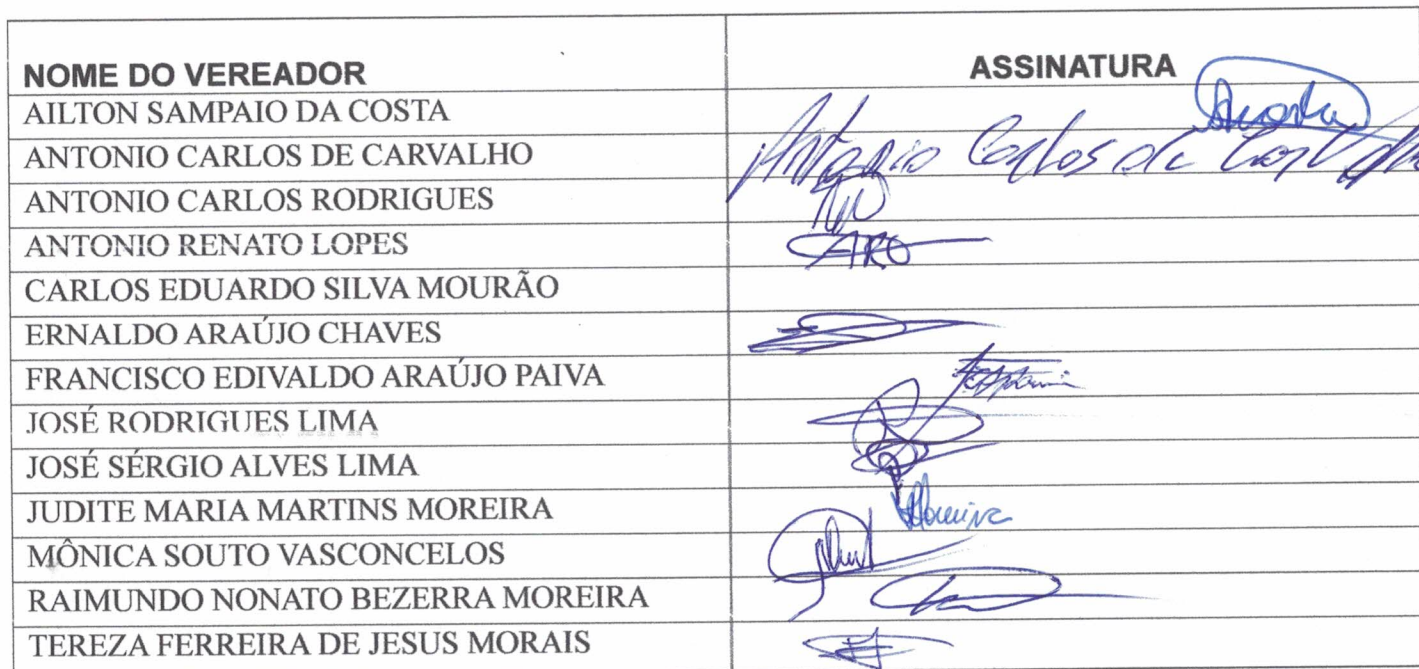 NOME DO VEREADOR ASSINATURA
AILTON SAMPAIO DA COSTA
ANTONIO CARLOS DE CARVALHO Antonio Carlos de
ANTONIO CARLOS RODRIGUES
ANTONIO RENATO LOPES ARO
CARLOS EDUARDO SILVA MOURÃO
ERNALDO ARAÚJO CHAVES
FRANCISCO EDIVALDO ARAÚJO PAIVA
JOSÉ RODRIGUES LIMA
JOSÉ SÉRGIO ALVES LIMA
JUDITE MARIA MARTINS MOREIRA
MÔNICA SOUTO VASCONCELOS
RAIMUNDO NONATO BEZERRA MOREIRA
TEREZA FERREIRA DE JESUS MORAIS